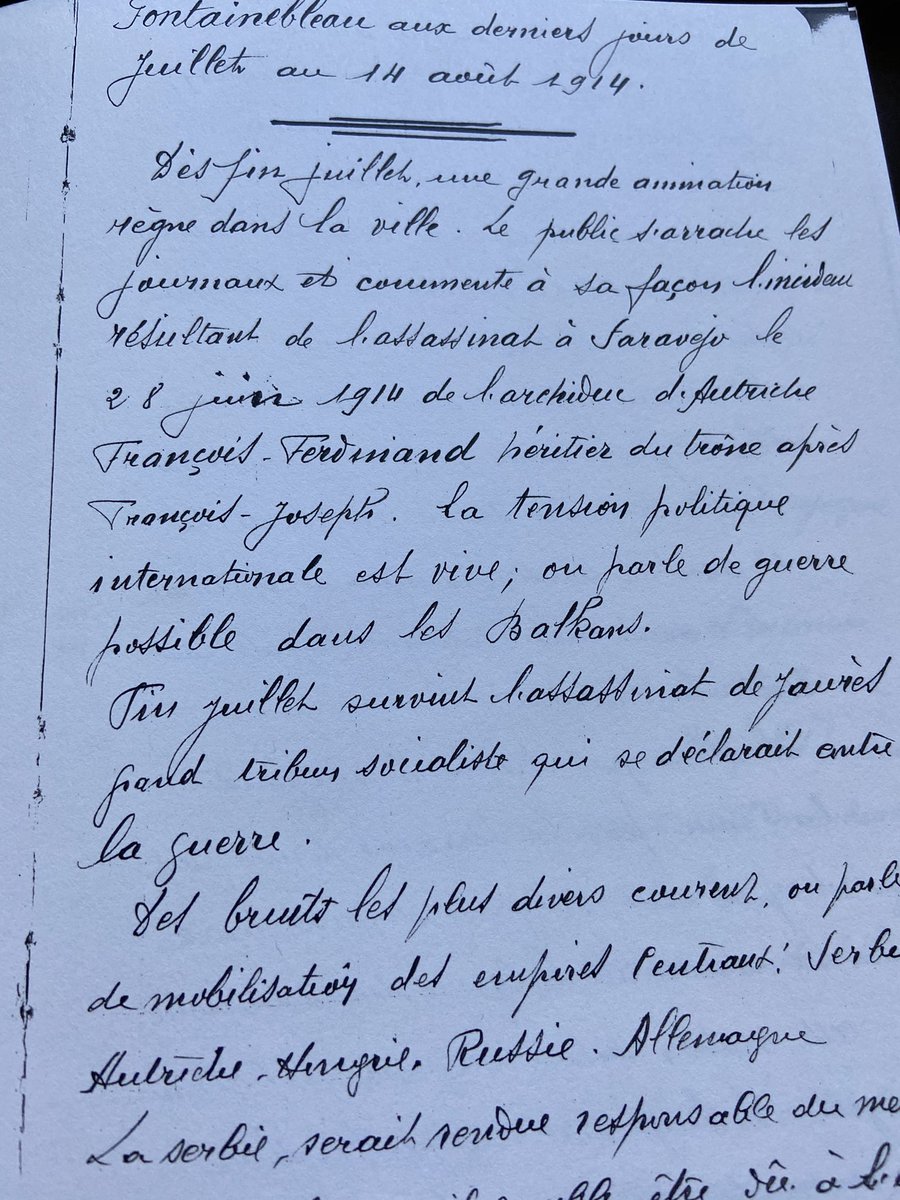 Fontainebleau aux derniers jours de
juillet au 14 août 1914.
Dès fin juillet, une grande animation
règne dans la ville. Le public s'arrache les
journaux et commente à sa façon l'incident
résultant de l'assassinat à Saravejo le
28 juin 1914 de l'archiduc d'Autriche
François-Ferdinand héritier du trône après
François-Joseph. La tension politique
internationale est vive; on parle de guerre
possible dans les Balkans.
Fin juillet survint l'assassinat de Jaurès
grand tribun socialiste qui se déclarait contre
la guerre.
Des bruits les plus divers courent, on parle
de mobilisation des empires Centraux: Serbie
Autriche-Hongrie. Russie. Allemagne
La serbie, serait rendue responsable du
être dû à